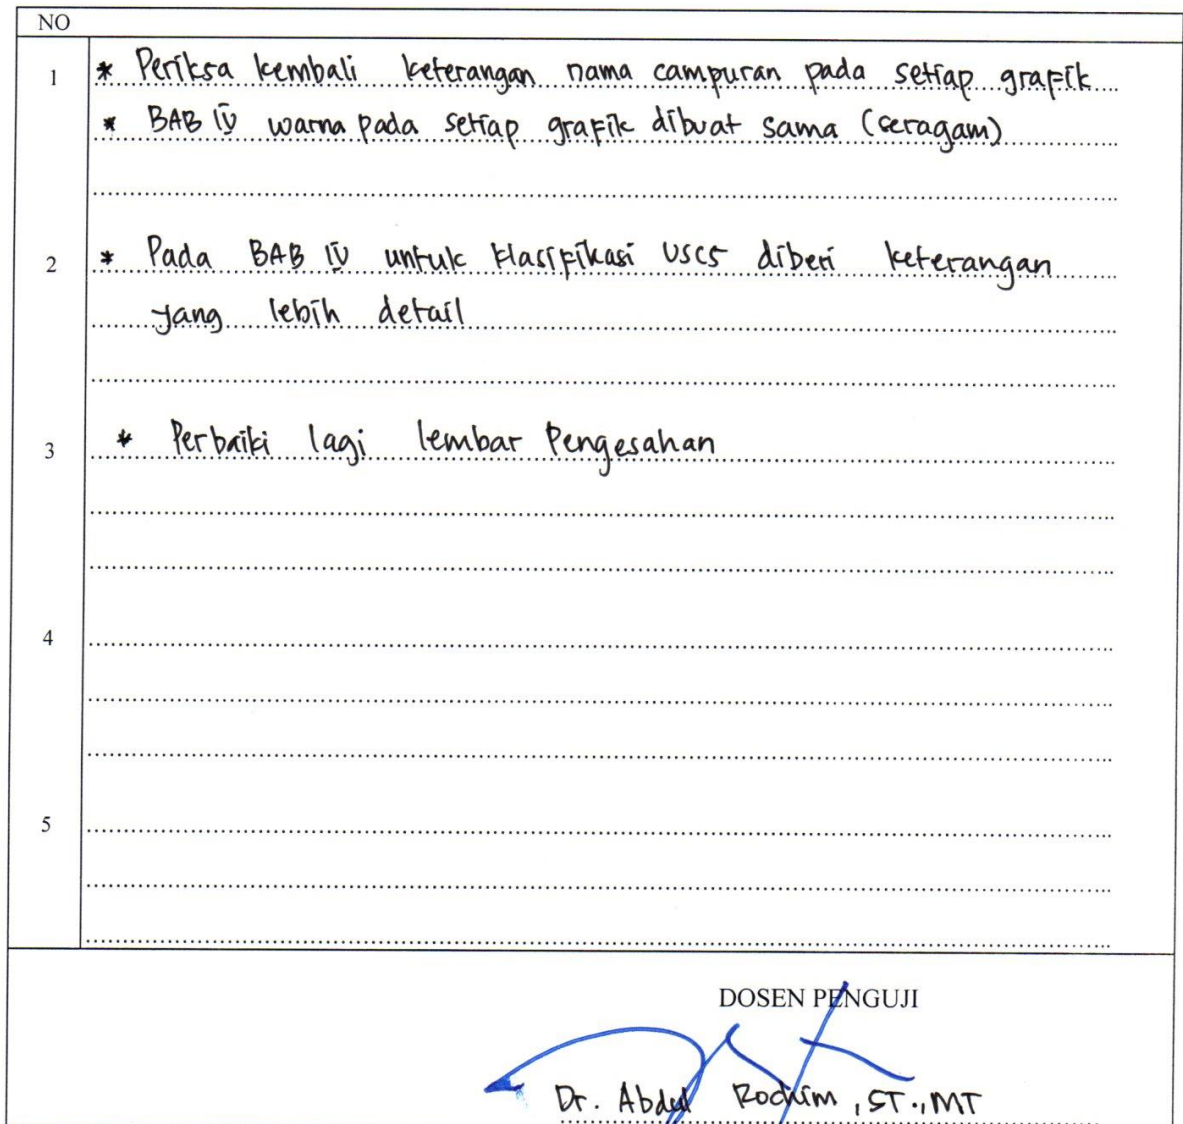 NO
1 * Periksa kembali keterangan nama campuran pada setiap grafik
* BAB IV warna pada setiap grafik dibuat sama (seragam)
2 * Pada BAB IV untuk klasifikasi USCS diberi keterangan
yang lebih detail
3 * Perbaiki lagi lembar Pengesahan
4
5
DOSEN PENGUJI
Dr. Abdul Rochim, ST., MT